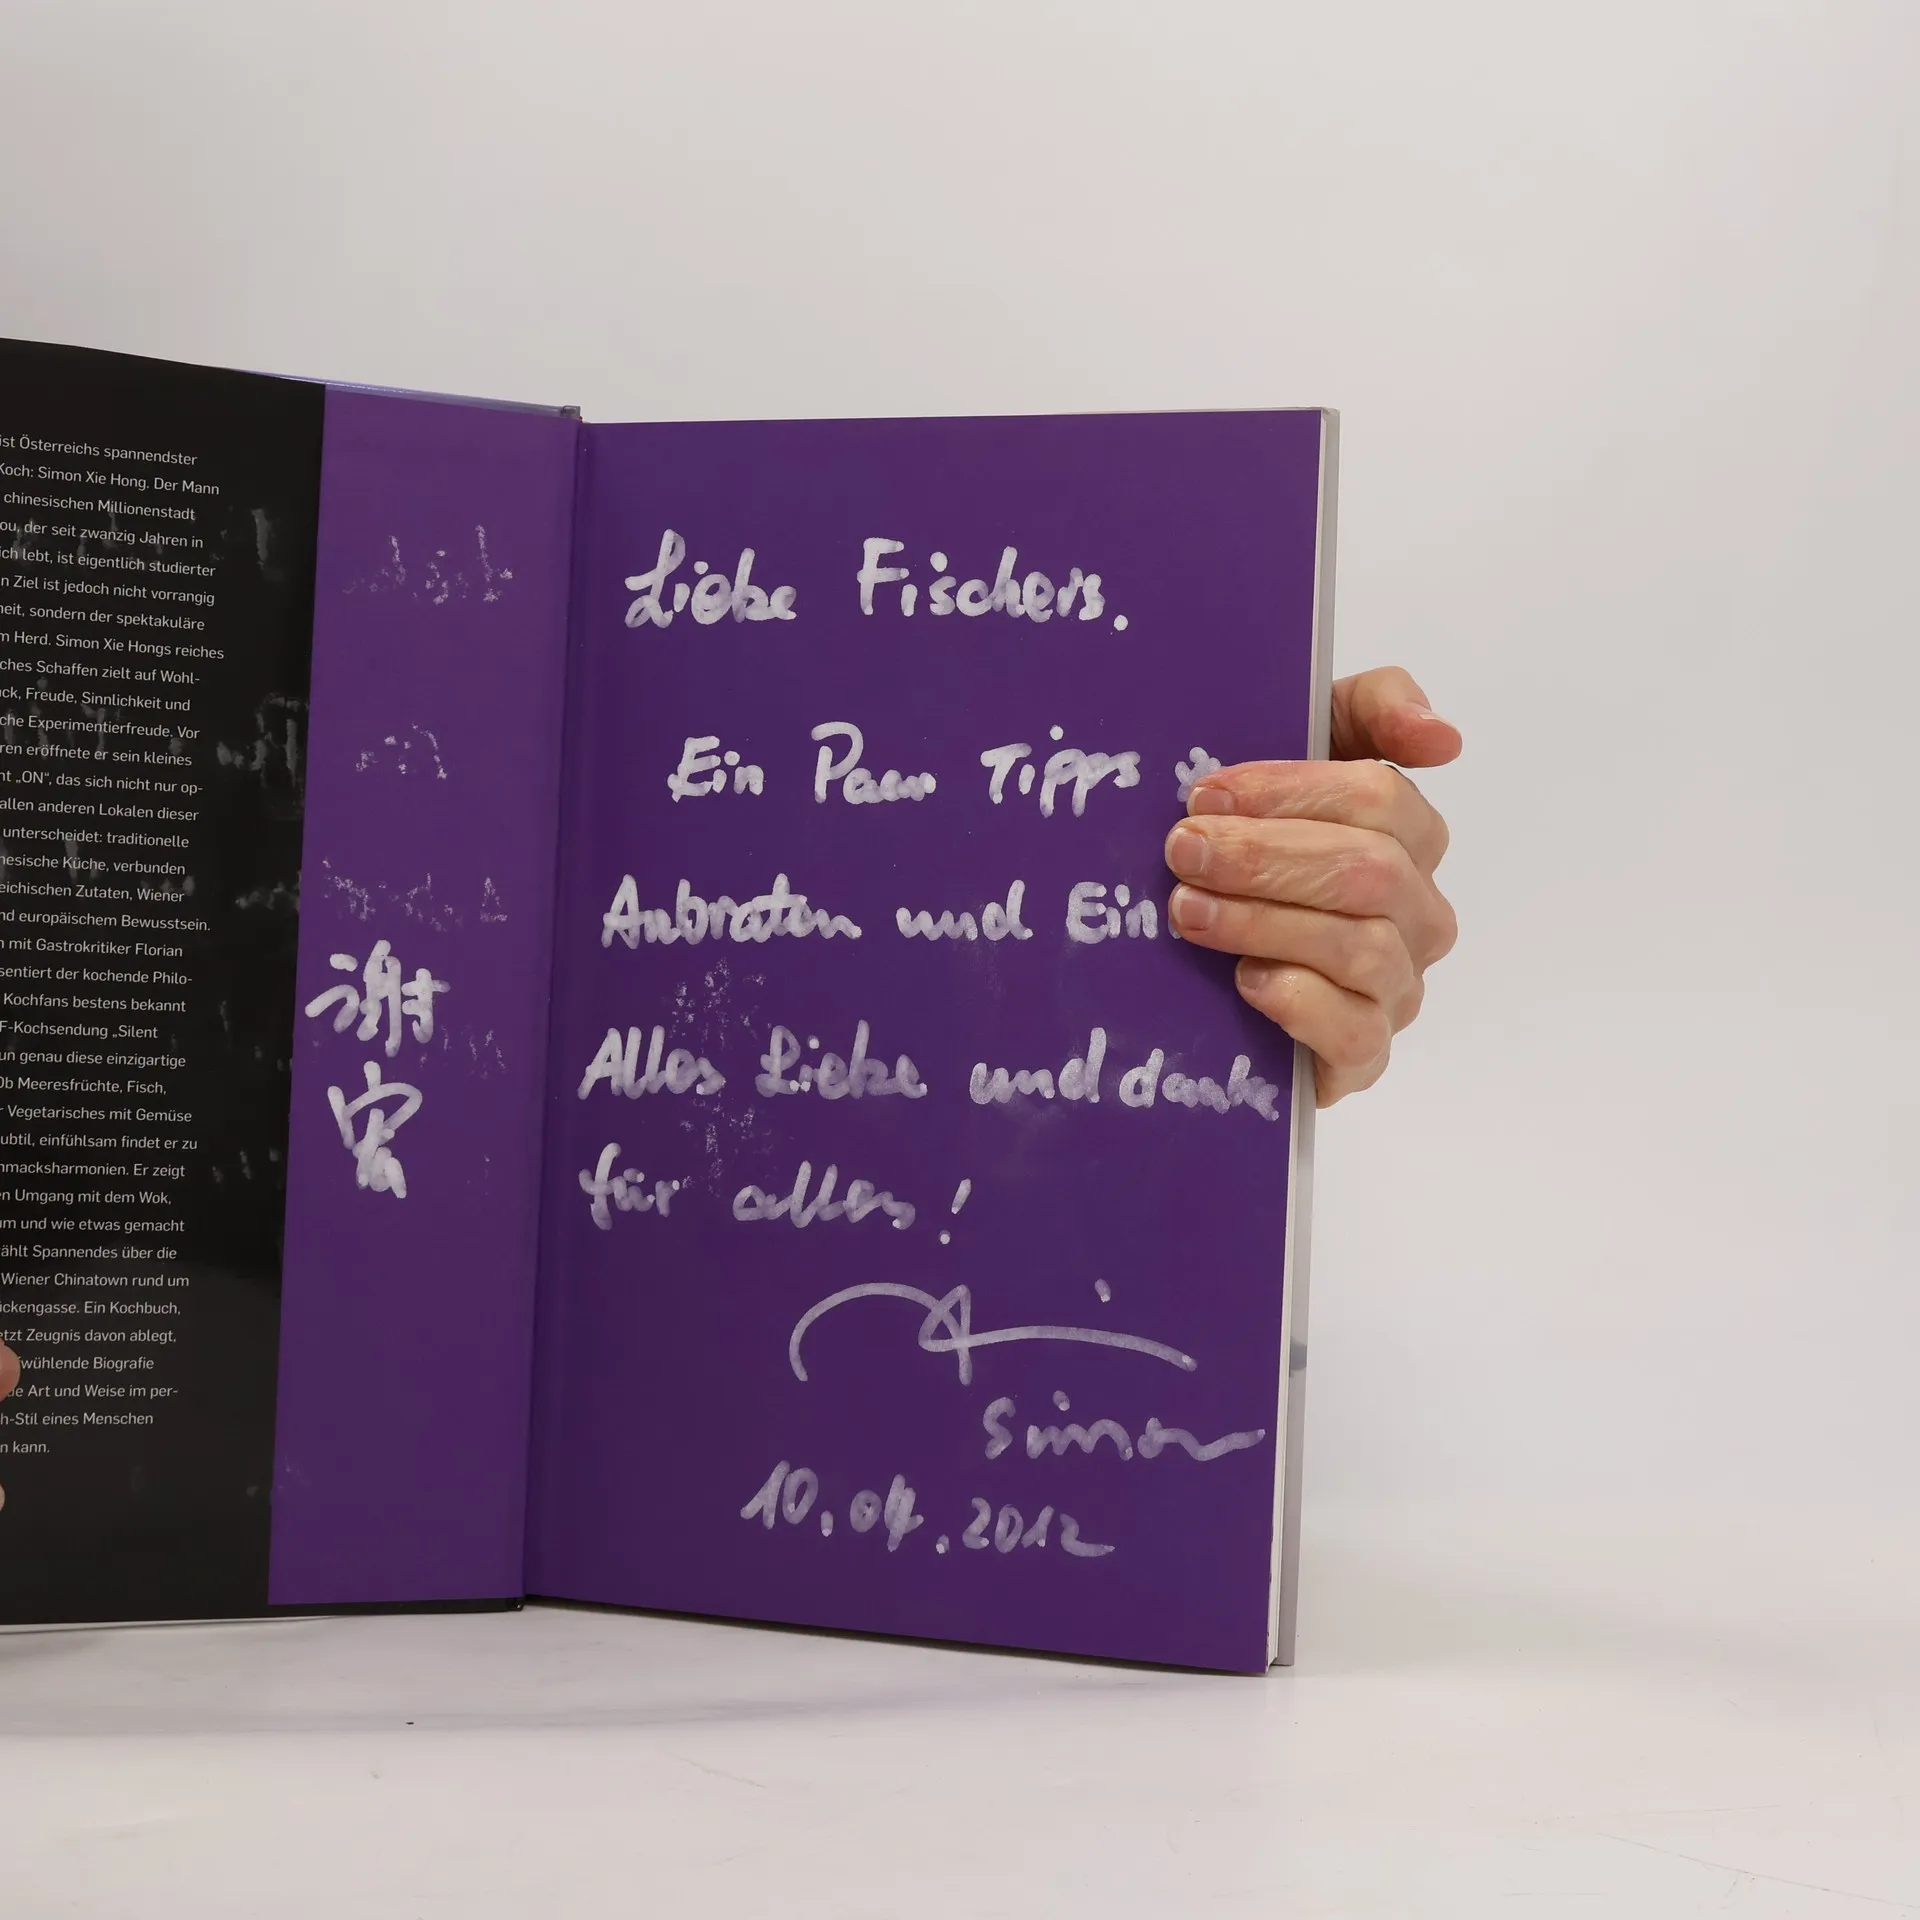 ist Österreichs spannendster
Koch: Simon Xie Hong. Der Mann
chinesischen Millionenstadt
ou, der seit zwanzig Jahren in
ich lebt, ist eigentlich studierter
n Ziel ist jedoch nicht vorrangig
heit, sondern der spektakuläre
m Herd. Simon Xie Hongs reiches
ches Schaffen zielt auf Wohl-
ck, Freude, Sinnlichkeit und
che Experimentierfreude. Vor
ren eröffnete er sein kleines
nt „ON“, das sich nicht nur op-
allen anderen Lokalen dieser
unterscheidet: traditionelle
nesische Küche, verbunden
eichischen Zutaten, Wiener
nd europäischem Bewusstsein.
n mit Gastrokritiker Florian
sentiert der kochende Philo-
Kochfans bestens bekannt
F-Kochsendung „Silent
un genau diese einzigartige
Ob Meeresfrüchte, Fisch,
r Vegetarisches mit Gemüse
ubtil, einfühlsam findet er zu
hmacksharmonien. Er zeigt
en Umgang mit dem Wok,
um und wie etwas gemacht
ählt Spannendes über die
Wiener Chinatown rund um
ückengasse. Ein Kochbuch,
etzt Zeugnis davon ablegt,
fwühlende Biografie
de Art und Weise im per-
h-Stil eines Menschen
n kann.
谢
宏
Liebe Fischers.
Ein Paar Tipps
Anbraten und Ein
Alles Liebe und danke
für alles!
Simon
10.04.2012